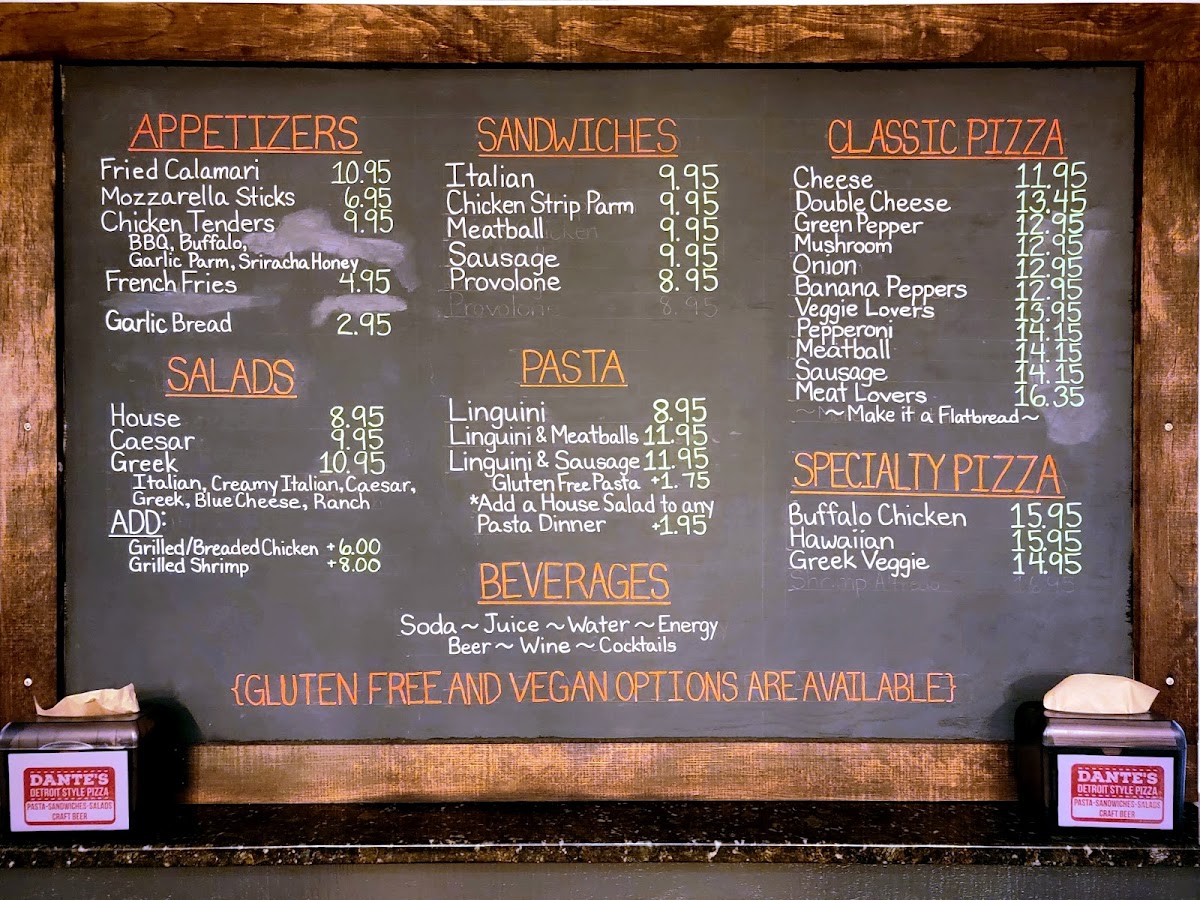 APPETIZERS
Fried Calamari 10.95
Mozzarella Sticks 6.95
Chicken Tenders 9.95
BBQ, Buffalo,
Garlic Parm, Sriracha Honey
French Fries 4.95
Garlic Bread 2.95
SALADS
House 8.95
Caesar 9.95
Greek 10.95
Italian, Creamy Italian, Caesar,
Greek, Blue Cheese, Ranch
ADD:
Grilled/Breaded Chicken +6.00
Grilled Shrimp +8.00
SANDWICHES
Italian 9.95
Chicken Strip Parm 9.95
Meatball 9.95
Sausage 9.95
Provolone 8.95
Provolone 8.95
PASTA
Linguini 8.95
Linguini & Meatballs 11.95
Linguini & Sausage 11.95
Gluten Free Pasta +1.75
*Add a House Salad to any
Pasta Dinner +1.95
BEVERAGES
Soda ~ Juice ~ Water ~ Energy
Beer ~ Wine ~ Cocktails
CLASSIC PIZZA
Cheese 11.95
Double Cheese 13.45
Green Pepper 12.95
Mushroom 12.95
Onion 12.95
Banana Peppers 12.95
Veggie Lovers 13.95
Pepperoni 14.15
Meatball 14.15
Sausage 14.15
Meat Lovers 16.35
~ Make it a Flatbread ~
SPECIALTY PIZZA
Buffalo Chicken 15.95
Hawaiian 15.95
Greek Veggie 14.95
Shrimp
{GLUTEN FREE AND VEGAN OPTIONS ARE AVAILABLE}
DANTE'S
DETROIT STYLE PIZZA
PASTA-SANDWICHES-SALADS
CRAFT BEER
DANTE'S
DETROIT STYLE PIZZA
PASTA-SANDWICHES-SALADS
CRAFT BEER